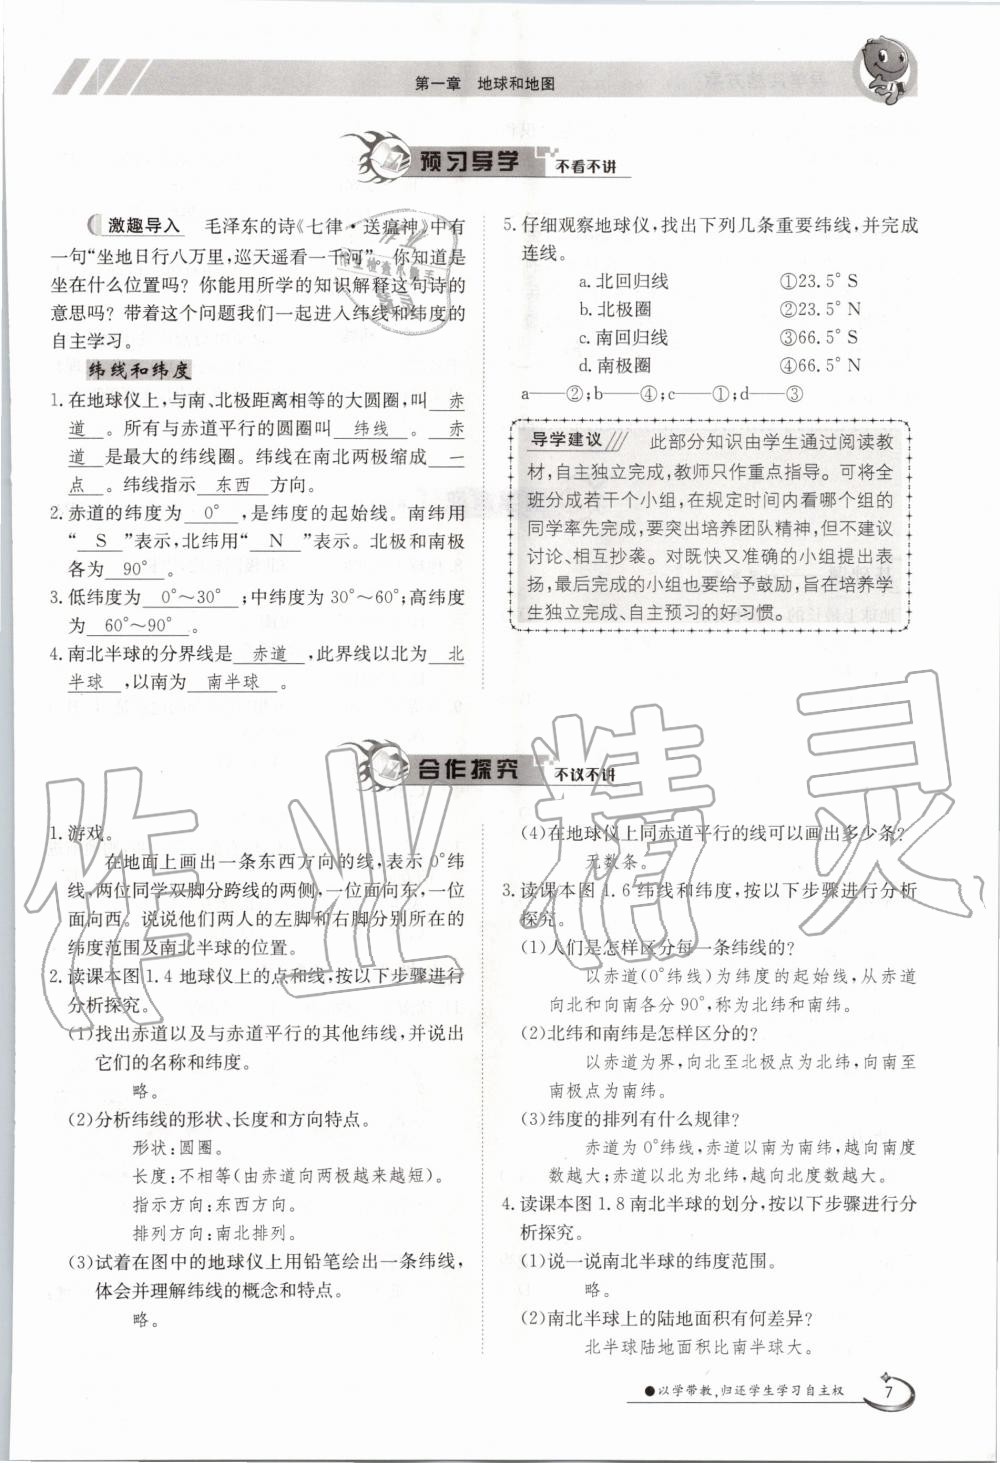 第一章 地球和地图
预习导学 不看不讲
激趣导入 毛泽东的诗《七律·送瘟神》中有
一句“坐地日行八万里,巡天遥看一千河”。你知道是
坐在什么位置吗? 你能用所学的知识解释这句诗的
意思吗? 带着这个问题我们一起进入纬线和纬度的
自主学习。
纬线和纬度
1.在地球仪上,与南、北极距离相等的大圆圈,叫 赤
道 。所有与赤道平行的圆圈叫 纬线 。 赤
道 是最大的纬线圈。纬线在南北两极缩成 一
点 。纬线指示 东西 方向。
2.赤道的纬度为 0° ,是纬度的起始线。南纬用
“ S ”表示,北纬用“ N ”表示。北极和南极
各为 90° 。
3.低纬度为 0°～30° ;中纬度为 30°～60°;高纬度
为 60°～90° 。
4.南北半球的分界线是 赤道 ,此界线以北为 北
半球 ,以南为 南半球 。
5.仔细观察地球仪,找出下列几条重要纬线,并完成
连线。
a.北回归线 ①23.5° S
b.北极圈 ②23.5° N
c.南回归线 ③66.5° S
d.南极圈 ④66.5° N
a——②;b——④;c——①;d——③
导学建议 此部分知识由学生通过阅读教
材,自主独立完成,教师只作重点指导。可将全
班分成若干个小组,在规定时间内看哪个组的
同学率先完成,要突出培养团队精神,但不建议
讨论、相互抄袭。对既快又准确的小组提出表
扬,最后完成的小组也要给予鼓励,旨在培养学
生独立完成、自主预习的好习惯。
合作探究 不议不讲
1.游戏。
在地面上画出一条东西方向的线,表示 0°纬
线,两位同学双脚分跨线的两侧,一位面向东,一位
面向西。说说他们两人的左脚和右脚分别所在的
纬度范围及南北半球的位置。
2.读课本图 1.4 地球仪上的点和线,按以下步骤进行
分析探究。
(1)找出赤道以及与赤道平行的其他纬线,并说出
它们的名称和纬度。
略。
(2)分析纬线的形状、长度和方向特点。
形状:圆圈。
长度:不相等(由赤道向两极越来越短)。
指示方向:东西方向。
排列方向:南北排列。
(3)试着在图中的地球仪上用铅笔绘出一条纬线,
体会并理解纬线的概念和特点。
略。
(4)在地球仪上同赤道平行的线可以画出多少条?
无数条。
3.读课本图 1.6 纬线和纬度,按以下步骤进行分析
探究。
(1)人们是怎样区分每一条纬线的?
以赤道(0°纬线)为纬度的起始线,从赤道
向北和向南各分 90°,称为北纬和南纬。
(2)北纬和南纬是怎样区分的?
以赤道为界,向北至北极点为北纬,向南至
南极点为南纬。
(3)纬度的排列有什么规律?
赤道为 0°纬线,赤道以南为南纬,越向南度
数越大;赤道以北为北纬,越向北度数越大。
4.读课本图 1.8 南北半球的划分,按以下步骤进行分
析探究。
(1)说一说南北半球的纬度范围。
略。
(2)南北半球上的陆地面积有何差异?
北半球陆地面积比南半球大。
●以学带教,归还学生学习自主权 7
作业精灵